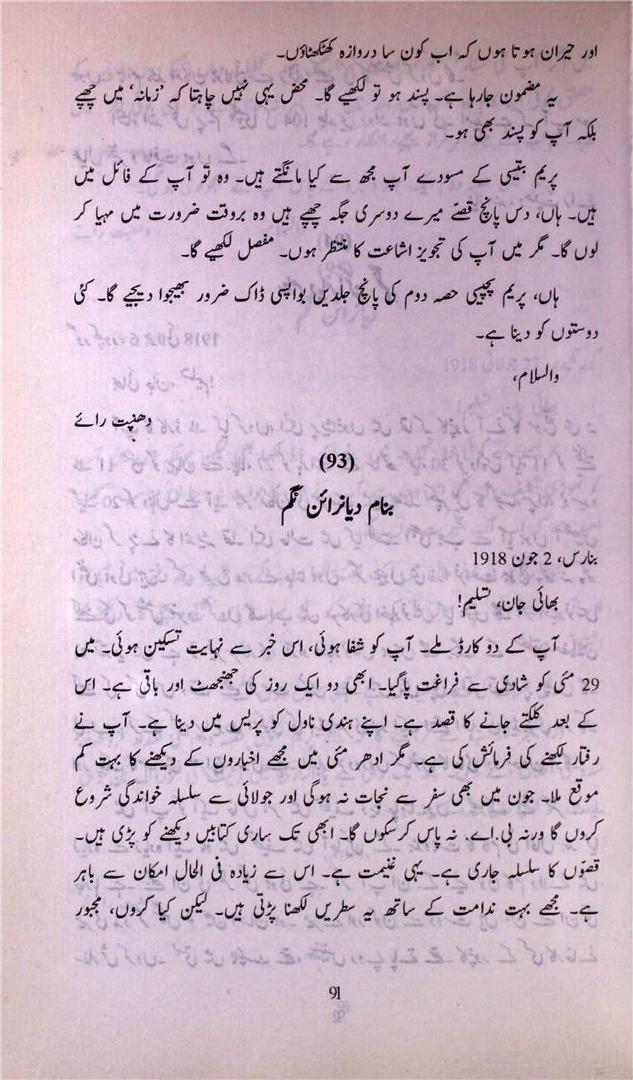 اور حیران ہوتا ہوں کہ اب کون سا دروازہ کھٹکھٹاؤں۔
یہ مضمون جارہا ہے۔ پسند ہو تو لکھیے گا۔ محض یہی نہیں چاہتا کہ ’زمانہ‘ میں چھپے
بلکہ آپ کو پسند بھی ہو۔
پریم بتیسی کے مسودے آپ مجھ سے کیا مانگتے ہیں۔ وہ تو آپ کے فائل میں
ہیں۔ ہاں، دس پانچ قصّے میرے دوسری جگہ چھپے ہیں وہ بروقت ضرورت میں مہیا کر
لوں گا۔ مگر میں آپ کی تجویز اشاعت کا منتظر ہوں۔ مفصل لکھیے گا۔
ہاں، پریم پچیسی حصہ دوم کی پانچ جلدیں بواپسی ڈاک ضرور بھیجوا دیجیے گا۔ کئی
دوستوں کو دینا ہے۔
والسلام،
دھنپت رائے
(93)
بنام دیانرائن نگم
بنارس، 2 جون 1918
بھائی جان، تسلیم!
آپ کے دو کارڈ ملے۔ آپ کو شفا ہوئی، اس خبر سے نہایت تسکین ہوئی۔ میں
29 مئی کو شادی سے فراغت پاگیا۔ ابھی دو ایک روز کی جھنجھٹ اور باقی ہے۔ اس
کے بعد کلکتے جانے کا قصد ہے۔ اپنے ہندی ناول کو پریس میں دینا ہے۔ آپ نے
رفتار لکھنے کی فرمائش کی ہے۔ مگر ادھر مئی میں مجھے اخباروں کے دیکھنے کا بہت کم
موقع ملا۔ جون میں بھی سفر سے نجات نہ ہوگی اور جولائی سے سلسلہ خواندگی شروع
کروں گا ورنہ بی۔اے۔ نہ پاس کرسکوں گا۔ ابھی تک ساری کتابیں دیکھنے کو پڑی ہیں۔
قصّوں کا سلسلہ جاری ہے۔ یہی غنیمت ہے۔ اس سے زیادہ فی الحال امکان سے باہر
ہے۔ مجھے بہت ندامت کے ساتھ یہ سطریں لکھنا پڑتی ہیں۔ لیکن کیا کروں، مجبور
91